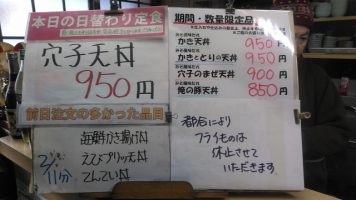 本日の日替わり定食
穴子天丼
950円
前日注文の多かった品目
2/11分
海鮮かき揚げ丼
えびプリッ天丼
てんてい丼
期間・数量限定品
かき天丼 950円
かきととりの天丼 950円
穴子のまぜ天丼 900円
俺の豚天丼 850円
都合により
フライものは
休止させて
いただきます。